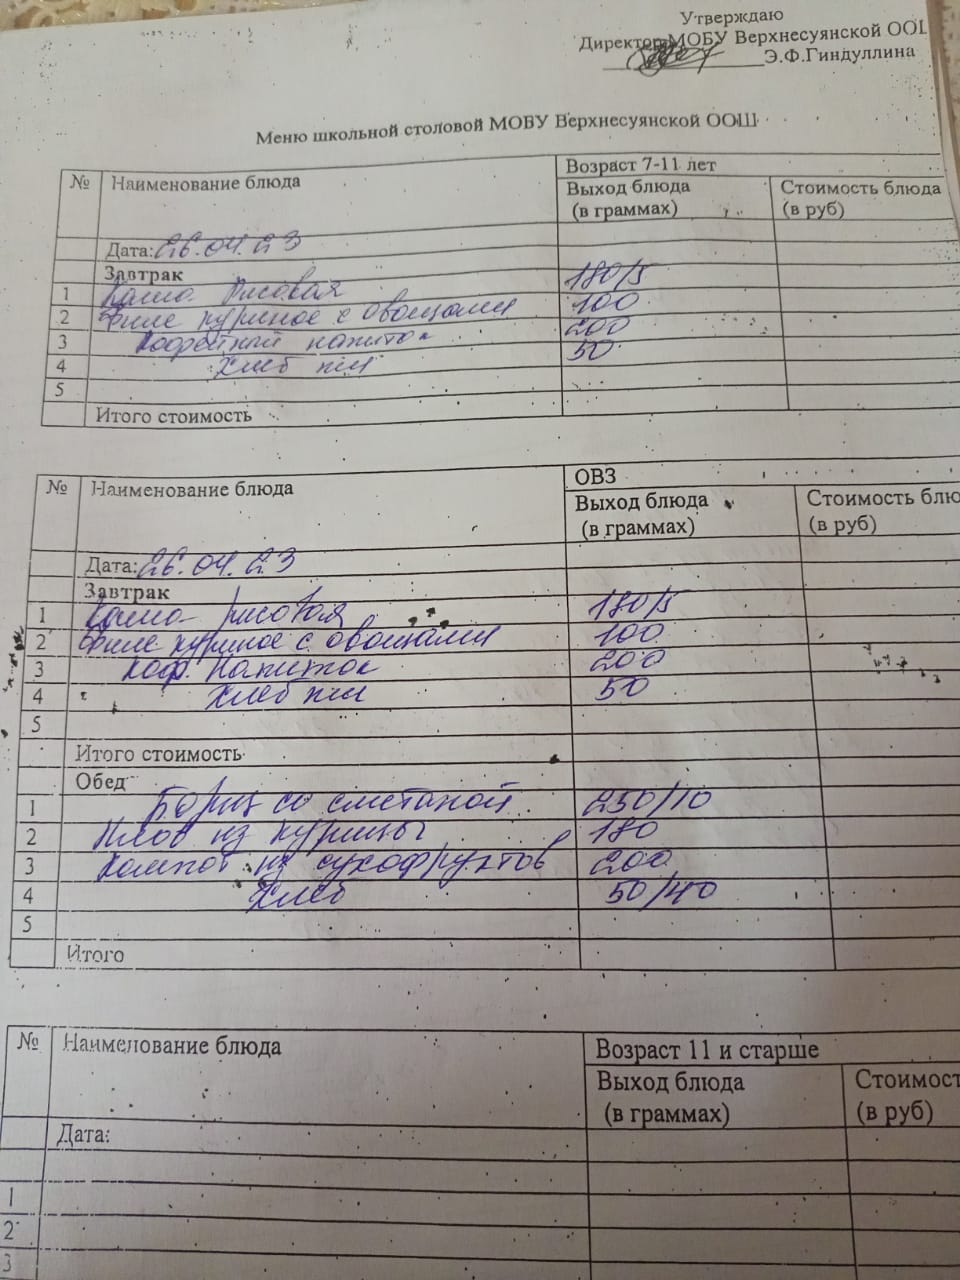 Утверждаю
Директор МОБУ Верхнесуянской ООШ
Э.Ф.Гиндуллина
Меню школьной столовой МОБУ Верхнесуянской ООШ
№ Наименование блюда Возраст 7-11 лет
Выход блюда (в граммах) Стоимость блюда (в руб)
Дата: 26.04.23
Завтрак
1 Каша рисовая 180/5
2 Филе куриное с овощами 100
3 Кофейный напиток 200
4 Хлеб пш 50
5
Итого стоимость
№ Наименование блюда ОВЗ
Выход блюда (в граммах) Стоимость блю (в руб)
Дата: 26.04.23
Завтрак
1 Каша рисовая 180/5
2 Филе куриное с овощами 100
3 Коф. напиток 200
4 Хлеб пш 50
5
Итого стоимость
Обед
1 Борщ со сметаной 250/10
2 Плов из курицы 180
3 Компот из сухофруктов 200
4 Хлеб 50/40
5
Итого
№ Наименование блюда Возраст 11 и старше
Выход блюда (в граммах) Стоимост (в руб)
Дата:
1
2
3